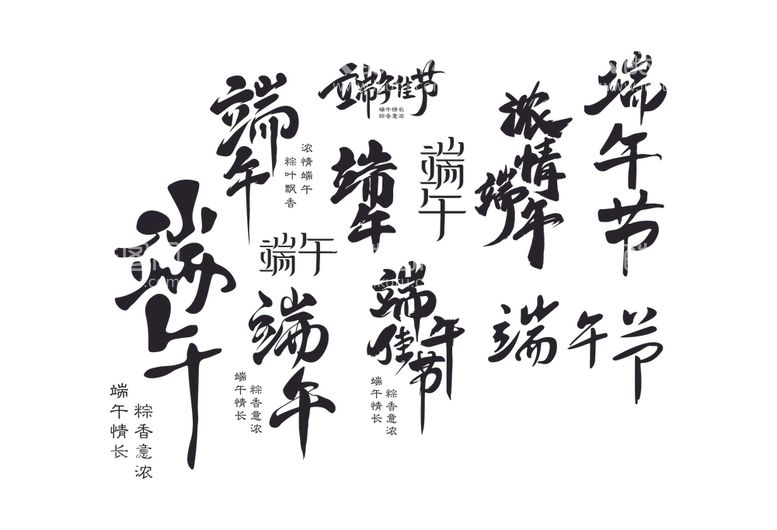 端午佳节
端午情长
粽香意浓
端午
浓情端午
粽叶飘香
端午
端午
浓情
端午
端午节
端午
端午
端午情长
粽香意浓
端午
粽香意浓
端午情长
端午
佳节
粽香意浓
端午情长
端午节